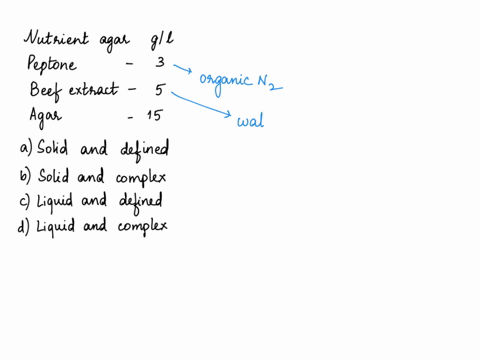 Nutrient agar g/l
Peptone - 3 → organic N2
Beef extract - 5 → wal
Agar - 15
a) Solid and defined
b) Solid and complex
c) Liquid and defined
d) Liquid and complex